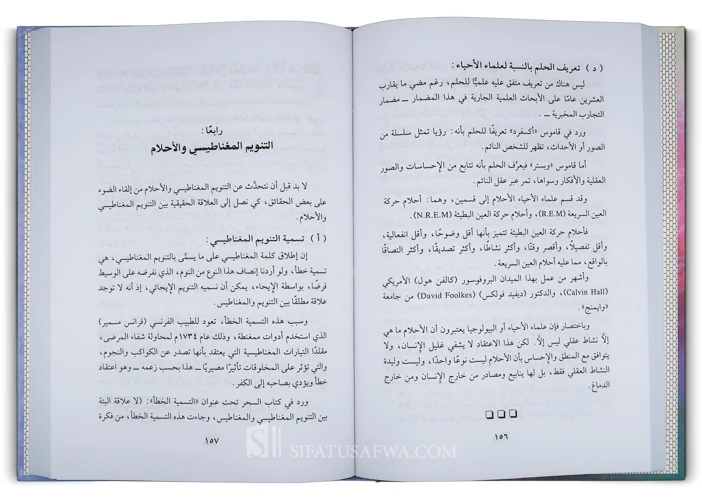 ( د ) تعريف الحلم بالنسبة لعلماء الأحياء :
ليس هناك من تعريف متفق عليه علميًّا للحلم، رغم مضي ما يقارب
العشرين عامًا على الأبحاث العلمية الجارية في هذا المضمار ــ مضمار
التجارب المخبرية ــ .
ورد في قاموس «أكسفرد» تعريفًا للحلم بأنه : رؤيا تمثل سلسلة من
الصور أو الأحداث، تظهر للشخص النائم.
أما قاموس «وبستر» فيعرِّف الحلم بأنه تتابع من الإحساسات والصور
العقلية والأفكار وسواها، تمر عبر عقل النائم.
وقد قسم علماء الأحياء الأحلام إلى قسمين، وهما : أحلام حركة
العين السريعة (R.E.M)، وأحلام حركة العين البطيئة (N.R.E.M).
فأحلام حركة العين البطيئة تتميز بأنها أقل وضوحًا، وأقل انفعالية،
وأقل تفصيلًا، وأقصر وقتًا، وأكثر نشاطًا، وأكثر تصديقًا، وأكثر التصاقًا
بالواقع، مما عليه أحلام العين السريعة.
وأشهر من عمل بهذا الميدان البروفوسور (كالفن هول) الأمريكي
(Calvin Hall)، والدكتور (ديفيد فولكس) (David Foolkes) من جامعة
«وايمنج».
وباختصار فإن علماء الأحياء أو البيولوجيا يعتبرون أن الأحلام ما هي
إلَّا نشاط عقلي ليس إلَّا. لكن هذا الاعتقاد لا يشفي غليل الإنسان، ولا
يتوافق مع المنطق والإحساس بأن الأحلام ليست نوعًا واحدًا، وليست وليدة
النشاط العقلي فقط، بل لها ينابيع ومصادر من خارج الإنسان ومن خارج
الدماغ.
١٥٦
رابعًا :
التنويم المغناطيسي والأحلام
لا بد قبل أن نتحدَّث عن التنويم المغناطيسي والأحلام من إلقاء الضوء
على بعض الحقائق، كي نصل إلى العلاقة الحقيقية بين التنويم المغناطيسي
والأحلام.
( أ ) تسمية التنويم المغناطيسي :
إن إطلاق كلمة المغناطيسي على ما يسمَّى بالتنويم المغناطيسي، هي
تسمية خطأ، ولو أردنا إنصاف هذا النوع من النوم، الذي نفرضه على الوسيط
فرضًا، بواسطة الإيحاء، يمكن أن نسميه التنويم الإيحائي، إذ أنه لا توجد
علاقة مطلقًا بين التنويم والمغناطيس.
وسبب هذه التسمية الخطأ، تعود للطبيب الفرنسي (فرانس مسمير)
الذي استخدم أدوات ممغنطة، وذلك عام ١٧٣٤م لمحاولة شفاء المرضى،
مقلدًا التيارات المغناطيسية التي يعتقد بأنها تصدر عن الكواكب والنجوم،
والتي تؤثر على المخلوقات تأثيرًا مصيريًّا ــ هذا بحسب زعمه ــ وهو اعتقاد
خطأ ويؤدي بصاحبه إلى الكفر.
ورد في كتاب السحر تحت عنوان «التسمية الخطأ» : (لا علاقة البتة
بين التنويم المغناطيسي والمغناطيس، وجاءت هذه التسمية الخطأ، من فكرة
١٥٧
SIFATUSAFWA.COM